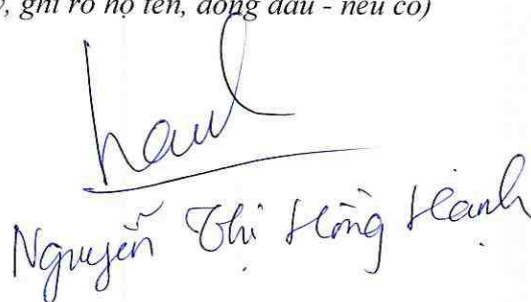 , ghi rõ họ tên, đóng dấu - nếu có)
Nguyễn Thị Hồng Hạnh